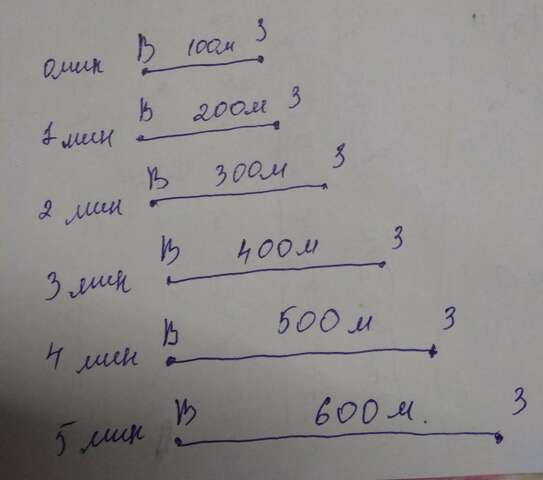 0 мин В 100м З
1 мин В 200м З
2 мин В 300м З
3 мин В 400м З
4 мин В 500м З
5 мин В 600м. З